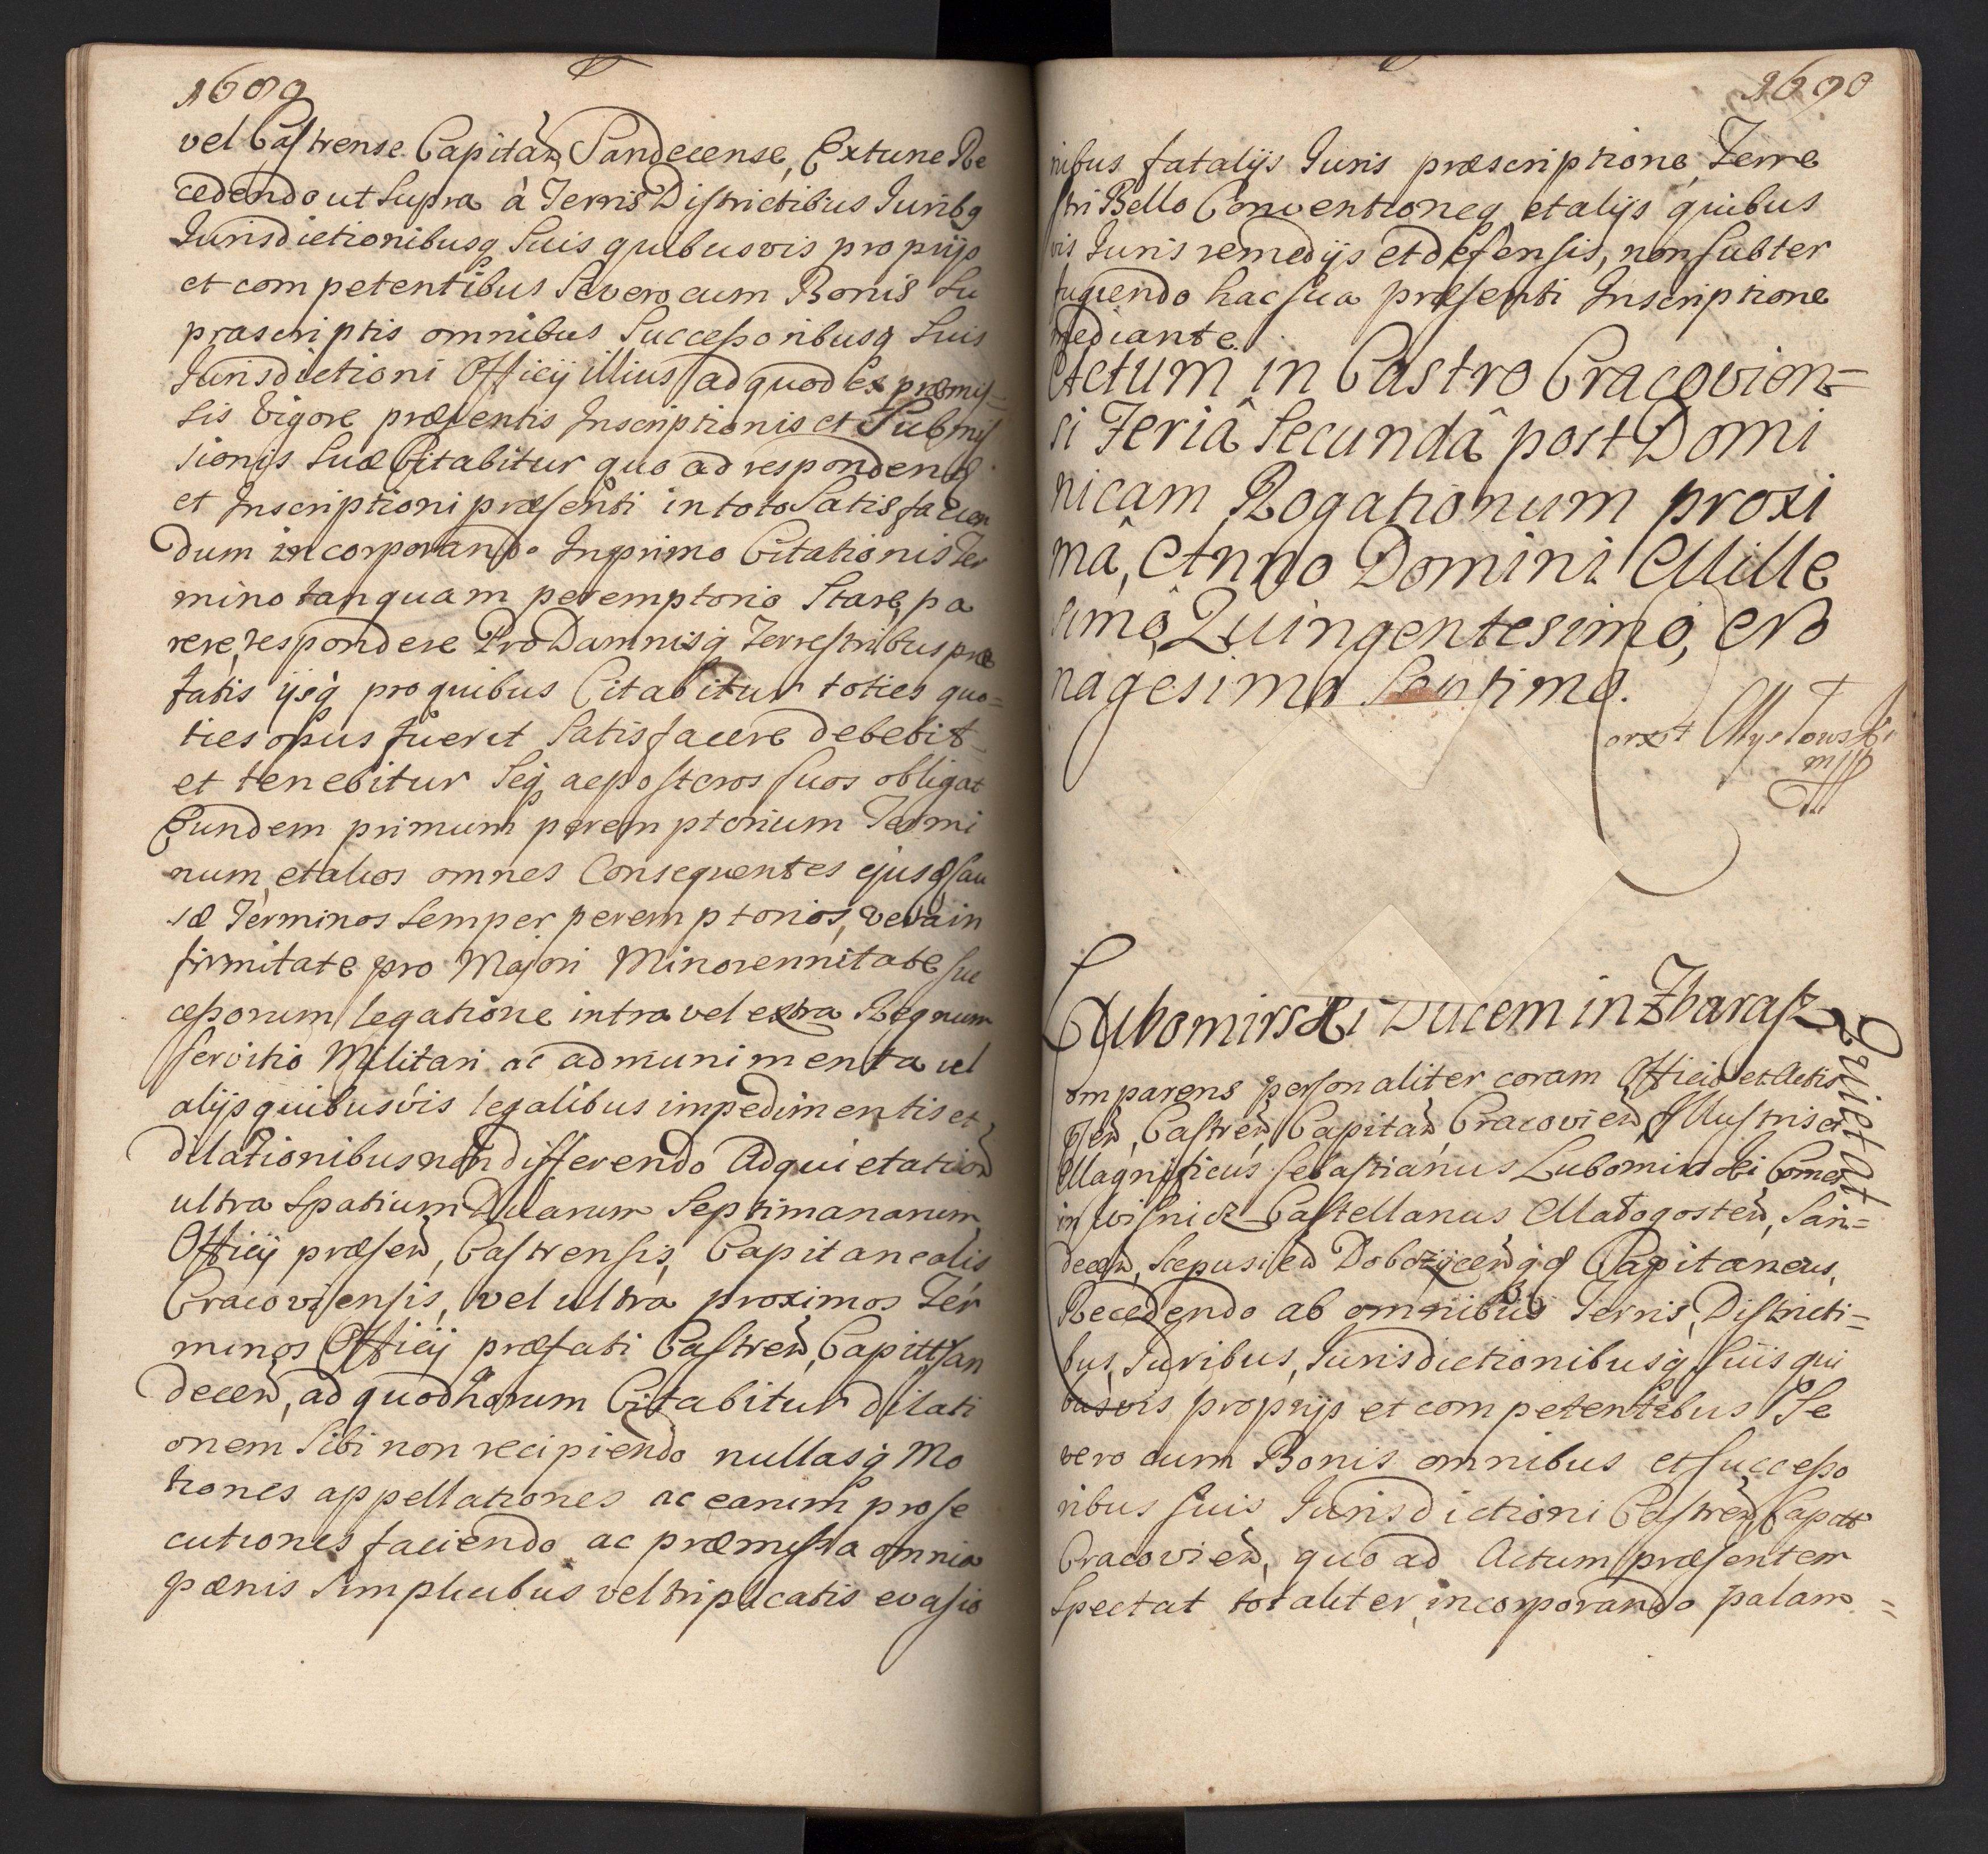 1689
vel Castrense Capitań Sandecense, Extunc Re
cedendo ut Supra à Terris Districtibus Juribq
Jurisdictionibusq Suis quibusvis proprijs
et competentibus Severo cum Bonis Su
prascriptis omnibus Successoribusq Suis
Jurisdictioni Officij illius ad quod ex præmis=
sis Vigore præsentis Inscriptionis et Submis
sionis Suæ Citabitur quo ad respondend
et Inscriptioni præsenti in toto Satisfacien
dum incorporando In primo Citationis Ter
mino tanquam peremptorio Stare, pa
rere, respondere Pro Damnisq Terrestribus præ
fatis ijsq pro quibus Citabitur toties quo=
ties opus fuerit Satisfacere debebit
et tenebitur Seq ac posteros suos obligat
Eundem primum peremptorium Termi
num, et alios omnes Consequentes ejusd cau
sæ Terminos Semper peremptorios, vera in
firmitate pro Majori Minorennitate Suc
cessorum legatione intra vel extra Regnum
servitio Militari ac ad munimenta vel
alijs quibusvis legalibus impedimentis et
dilationibus non differendo Ad quietation
ultra Spatium Duarum Septimanarum
Officij præseń, Castrensis, Capitanealis
Cracoviensis, vel ultra proximos Ter
minos Officij præfati Castreń, Capitt San
deceń, ad quod horum Citabitur dilati
onem Sibi non recipiendo nullasq Mo
tiones appellationes ac earum prose
cutiones faciendo ac præmissa omnia
pænis Simplicibus vel triplicatis evasio
1690
nibus fatalijs Juris præscriptione, Terre
stri Bello Conventioneq et alijs quibus
vis Juris remedijs et defensis, non subter
fugiendo hac sua præsenti Inscriptione
mediante.
Actum in Castro Cracovien=
si Feriâ Secundâ post Domi
nicam Rogationum proxi
mâ, Anno Domini Mille
simô, Quingentesimo, No
nagesimo Septimo.
mpp
Lubomirski Ducem in Zbarasz
Quietat
omparens personaliter coram Officio et Actis
Castreń, Capitań, Cracovień, Illustris et
Magnificus Sebastianus Lubomirski Comes
in Wisnicz Castellanus Małogosteń, San=
deceń, Scepusień Dobczyceń qq Capitaneus,
Recedendo ab omnibus Terris, Districti=
bus, Juribus, Jurisdictionibusq Suis qui
busvis proprijs et competentibus Se
vero cum Bonis omnibus et Successo
ribus suis Jurisdictioni Castreń Capitt
Cracovień, quo ad Actum præsentem
Spectat totaliter incorporando palam =